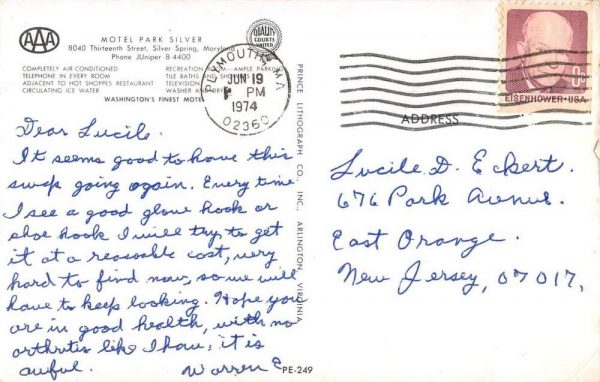 AAA
MOTEL PARK SILVER
8040 Thirteenth Street, Silver Spring, Maryland
Phone JUniper 8-4400
COMPLETELY AIR CONDITIONED
TELEPHONE IN EVERY ROOM
ADJACENT TO HOT SHOPPES RESTAURANT
CIRCULATING ICE WATER
RECREATION AMPLE PARKING
TILE BATHS SHOWERS
TELEVISION
WASHER AND DRYER
WASHINGTON'S FINEST MOTEL
QUALITY
COURTS
UNITED
PLYMOUTH, MA
JUN 19
PM
1974
02360
PRINCE LITHOGRAPH CO., INC., ARLINGTON, VIRGINIA
EISENHOWER·USA
ADDRESS
Dear Lucile.
It seems good to have this
swap going again. Every time
I see a good glove hook or
shoe hook I will try to get
it at a reasonable cost, very
hard to find now, so we will
have to keep looking. Hope you
are in good health, with no
arthritis like I have, it is
awful. Warren E
PE-249
Lucile D. Eckert.
676 Park Avenue.
East Orange.
New Jersey, 07017,